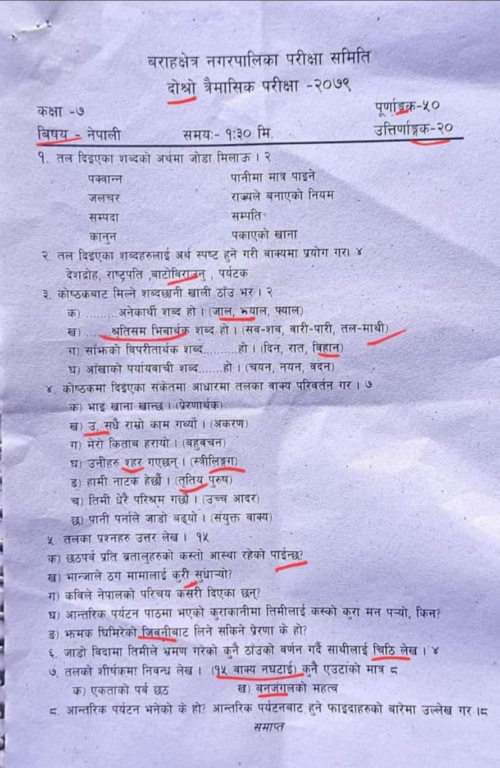 बराहक्षेत्र नगरपालिका परीक्षा समिति
दोश्रो त्रैमासिक परीक्षा -२०७९
कक्षा -७ पूर्णाङ्क-५०
बिषय - नेपाली समय:- १:३० मि. उत्तिर्णाङ्क-२०
१. तल दिइएका शब्दको अर्थमा जोडा मिलाऊ । २
पक्वान्न पानीमा मात्र पाइने
जलचर राज्यले बनाएको नियम
सम्पदा सम्पति
कानुन पकाएको खाना
२. तल दिइएका शब्दहरुलाई अर्थ स्पष्ट हुने गरी वाक्यमा प्रयोग गर। ४
देशद्रोह, राष्ट्रपति ,बाटोबिराउनु , पर्यटक
३. कोष्ठकबाट मिल्ने शब्दछानी खाली ठाँउ भर । २
क) .........अनेकार्थी शब्द हो । (जाल, झ्याल, फ्याल)
ख) ..... श्रुतिसम भिन्नार्थक शब्द हो । (सब-शब, बारी-पारी, तल-माथी)
ग) साँझको विपरीतार्थक शब्द.........हो । (दिन, रात, बिहान)
घ) आँखाको पर्यायवाची शब्द......हो । (चयन, नयन, वदन)
४. कोष्ठकमा दिइएका संकेतमा आधारमा तलका वाक्य परिवर्तन गर । ७
क) भाइ खाना खान्छ । (प्रेरणार्थक)
ख) उ, सधै राम्रो काम गर्थ्यो । (अकरण)
ग) मेरो किताब हरायो । (बहुबचन)
घ) उनीहरु श्हर गएछन् । (स्त्रीलिङ्गग)
ङ) हामी नाटक हेर्छौं । (तृतिय पुरुष)
च) तिमी धेरै परिश्रम गर्छौ । (उच्च आदर)
छ) पानी पर्नाले जाडो बढ्यो । (संयुक्त वाक्य)
५. तलका प्रश्नहरु उत्तर लेख । १५
क) छठपर्व प्रति ब्रतालुहरुको कस्तो आस्था रहेको पाईन्छ?
ख) भान्जाले ठग मामालाई कुरी सुधाऱ्यो?
ग) कविले नेपालको परिचय कसरी दिएका छन्?
घ) आन्तरिक पर्यटन पाठमा भएको कुराकानीमा तिमीलाई कस्को कुरा मन पऱ्यो, किन?
ङ) झमक घिमिरेको जिबनीबाट लिने सकिने प्रेरणा के हो?
६. जाडो बिदामा तिमीले भ्रमण गरेको कुनै ठाँउको बर्णन गर्दै साथीलाई चिठि लेख । ४
७. तलको शीर्षकमा निबन्ध लेख । (१५ वाक्य नघटाई) कुनै एउटांको मात्र ८
क) एकताको पर्व छठ ख) बनजंगलको महत्व
८. आन्तरिक पर्यटन भनेको के हो? आन्तरिक पर्यटनबाट हुने फाइदाहरुको बारेमा उल्लेख गर ।८
समाप्त